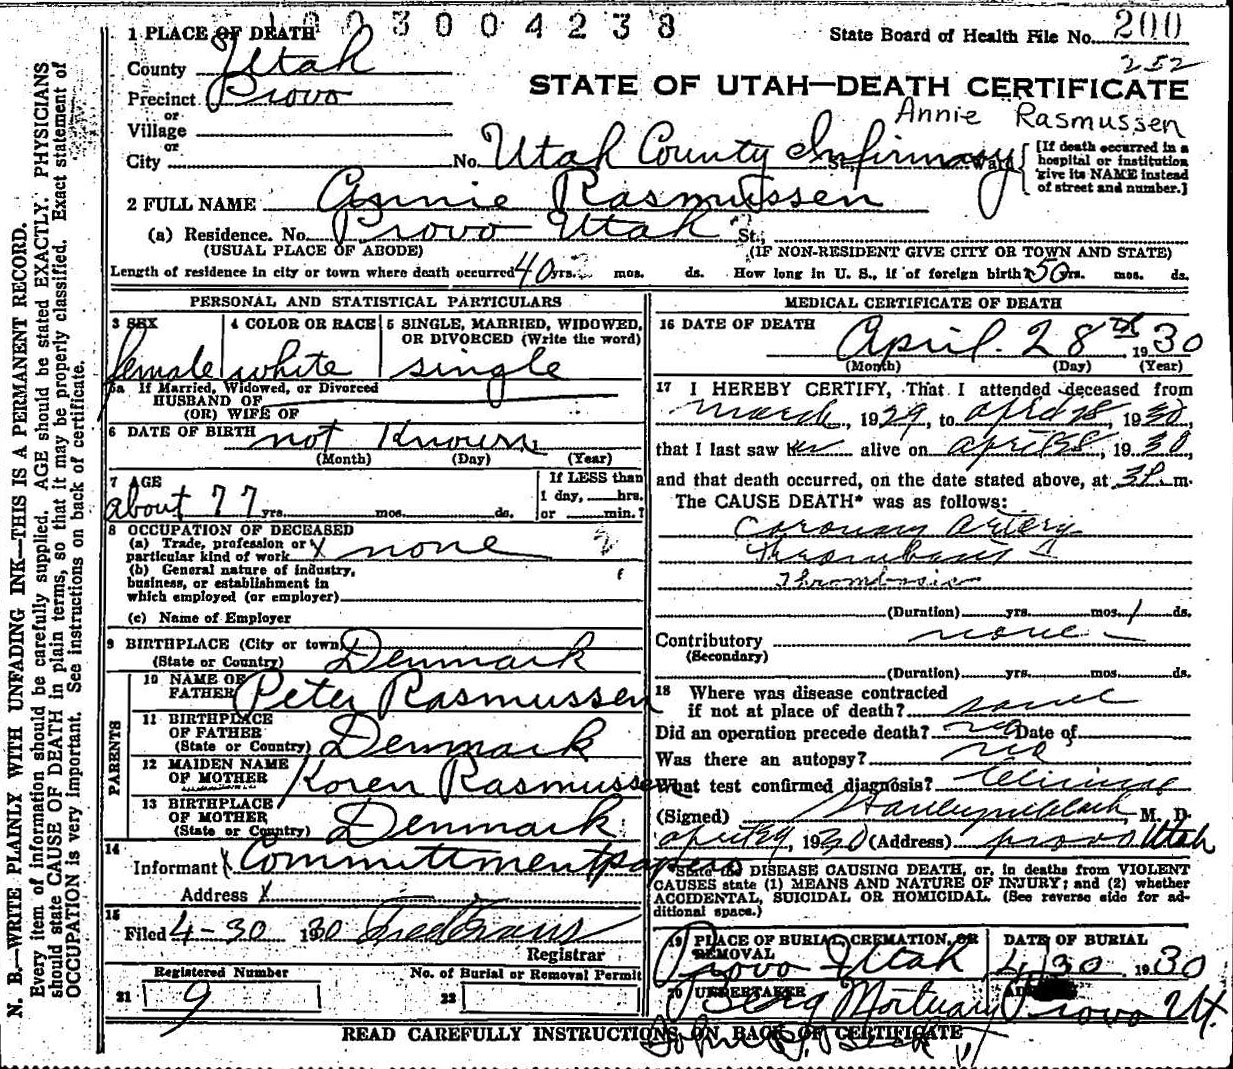 1003004238
State Board of Health File No. 200
252
1 PLACE OF DEATH
County Utah
STATE OF UTAH—DEATH CERTIFICATE
Precinct Provo
or
Village
Annie Rasmussen
or
City No. Utah County Infirmary St., Ward
[If death occurred in a hospital or institution give its NAME instead of street and number.]
2 FULL NAME Annie Rasmussen
(a) Residence. No. Provo Utah St.,
(USUAL PLACE OF ABODE) (IF NON-RESIDENT GIVE CITY OR TOWN AND STATE)
Length of residence in city or town where death occurred 40 yrs. mos. ds. How long in U. S., if of foreign birth? 50 yrs. mos. ds.
PERSONAL AND STATISTICAL PARTICULARS
3 SEX
female
4 COLOR OR RACE
white
5 SINGLE, MARRIED, WIDOWED,
OR DIVORCED (Write the word)
single
5a If Married, Widowed, or Divorced
HUSBAND OF
(OR) WIFE OF
6 DATE OF BIRTH not Known
(Month) (Day) (Year)
7 AGE
about 77 yrs. mos. ds.
If LESS than
1 day, hrs.
or min.?
8 OCCUPATION OF DECEASED
(a) Trade, profession or
particular kind of work X none
(b) General nature of industry,
business, or establishment in
which employed (or employer)
(c) Name of Employer
9 BIRTHPLACE (City or town)
(State or Country) Denmark
PARENTS
10 NAME OF
FATHER Peter Rasmussen
11 BIRTHPLACE
OF FATHER
(State or Country) Denmark
12 MAIDEN NAME
OF MOTHER Koren Rasmussen
13 BIRTHPLACE
OF MOTHER
(State or Country) Denmark
14
Informant Committment papers
Address X
15
Filed 4-30 1930
Registrar
Registered Number
21 9
No. of Burial or Removal Permit
22
MEDICAL CERTIFICATE OF DEATH
16 DATE OF DEATH
April 28th 1930
(Month) (Day) (Year)
17 I HEREBY CERTIFY, That I attended deceased from
march, 1929, to april 28, 1930,
that I last saw her alive on april 28, 1930,
and that death occurred, on the date stated above, at 3P. m.
The CAUSE DEATH* was as follows:
Coronary artery
Thrombosis
Thrombosis
(Duration) yrs. mos. 1 ds.
Contributory none
(Secondary)
(Duration) yrs. mos. ds.
18 Where was disease contracted
if not at place of death? same
Did an operation precede death? no Date of
Was there an autopsy? no
What test confirmed diagnosis? Clinical
(Signed) M. D.
april 29, 1930 (Address) provo Utah
*State the DISEASE CAUSING DEATH, or, in deaths from VIOLENT
CAUSES state (1) MEANS AND NATURE OF INJURY; and (2) whether
ACCIDENTAL, SUICIDAL OR HOMICIDAL. (See reverse side for ad-
ditional space.)
19 PLACE OF BURIAL, CREMATION, OR
REMOVAL
Provo Utah
DATE OF BURIAL
4/30 1930
20 UNDERTAKER
Berg Mortuary Provo Ut.
READ CAREFULLY INSTRUCTIONS ON BACK OF CERTIFICATE
N. B.—WRITE PLAINLY WITH UNFADING INK—THIS IS A PERMANENT RECORD.
Every item of information should be carefully supplied. AGE should be stated EXACTLY. PHYSICIANS
should state CAUSE OF DEATH in plain terms, so that it may be properly classified. Exact statement of
OCCUPATION is very important. See instructions on back of certificate.